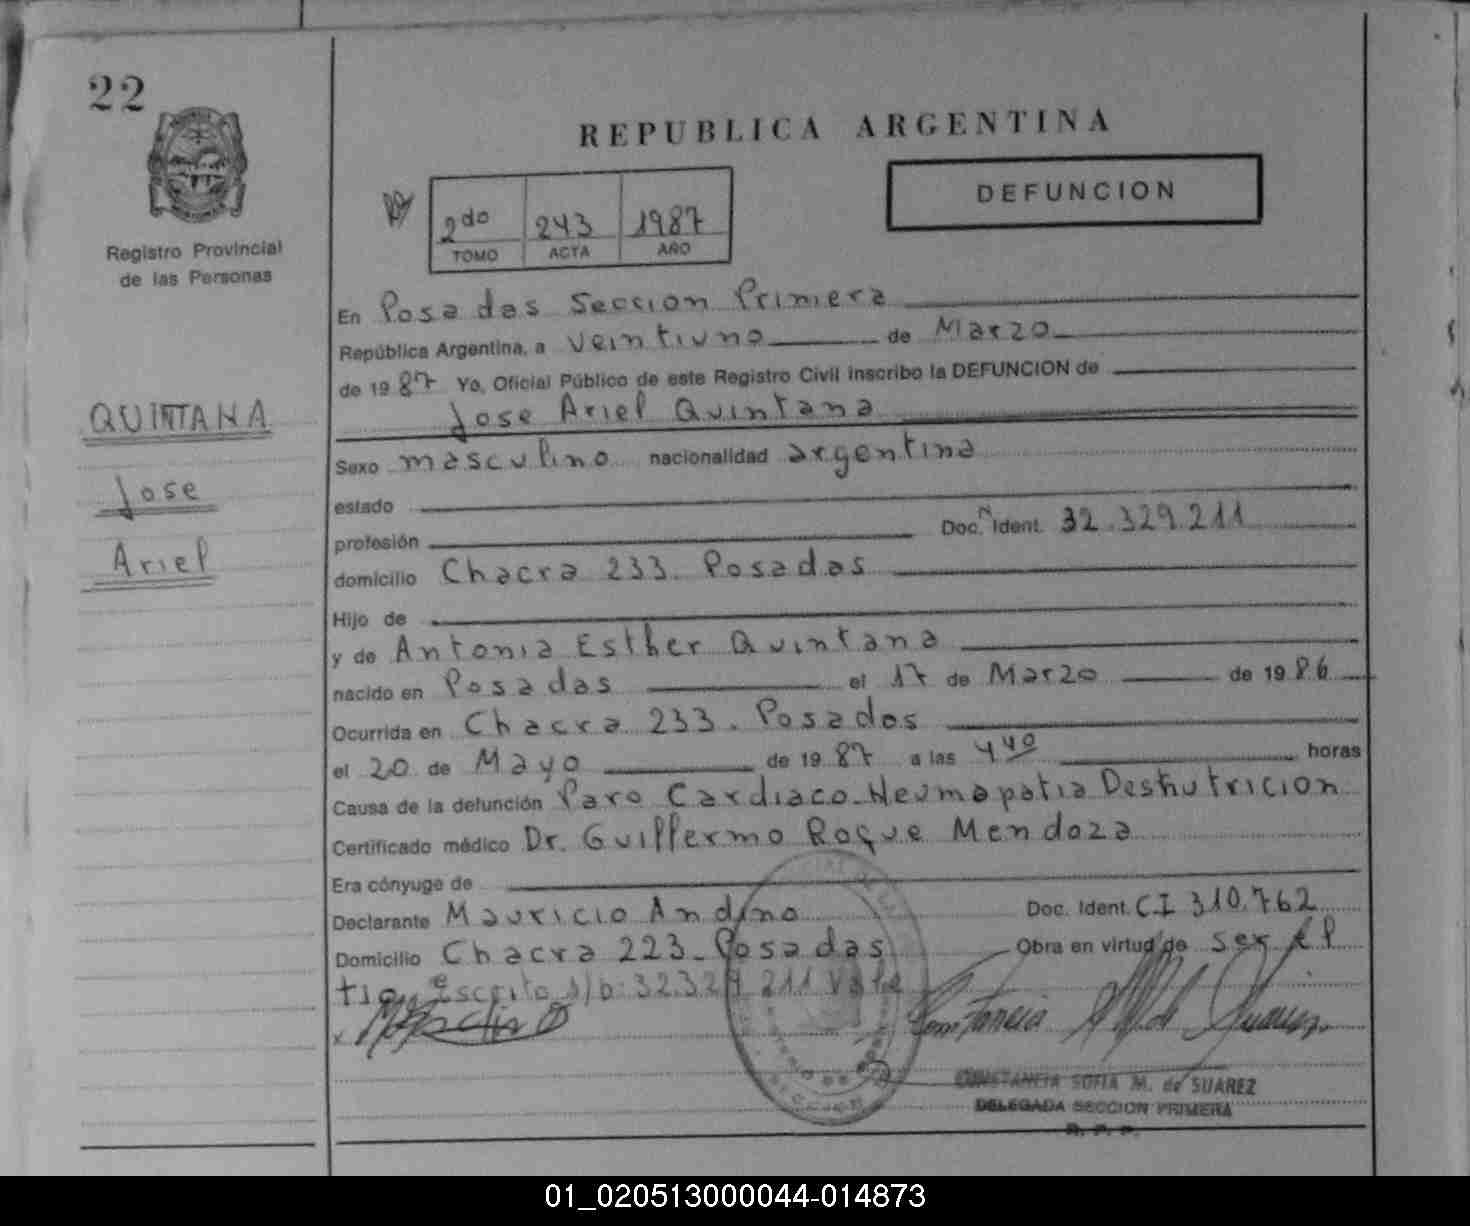 22
Registro Provincial
de las Personas
QUINTANA
Jose
Ariel
REPUBLICA ARGENTINA
DEFUNCION
2do 243 1987
TOMO ACTA AÑO
En Posadas Seccion Primera
República Argentina, a veintiuno de Marzo
de 1987 Yo, Oficial Público de este Registro Civil inscribo la DEFUNCION de
Jose Ariel Quintana
Sexo masculino nacionalidad argentina
estado
profesión Doc. N Ident. 32.329.211
domicilio Chacra 233. Posadas
Hijo de
y de Antonia Esther Quintana
nacido en Posadas el 17 de Marzo de 1986
Ocurrida en Chacra 233. Posadas
el 20 de Mayo de 1987 a las 4 40 horas
Causa de la defunción Paro Cardiaco-Neumopatia Desnutricion
Certificado médico Dr. Guillermo Roque Mendoza
Era cónyuge de
Declarante Mauricio Andino Doc. Ident. CI 310.762
Domicilio Chacra 223-Posadas Obra en virtud de ser el
tio. Escrito s/b: 32.329.211 Vale
CONSTANCIA SOFIA M. de SUAREZ
DELEGADA SECCION PRIMERA
R. P. P.
01_020513000044-014873